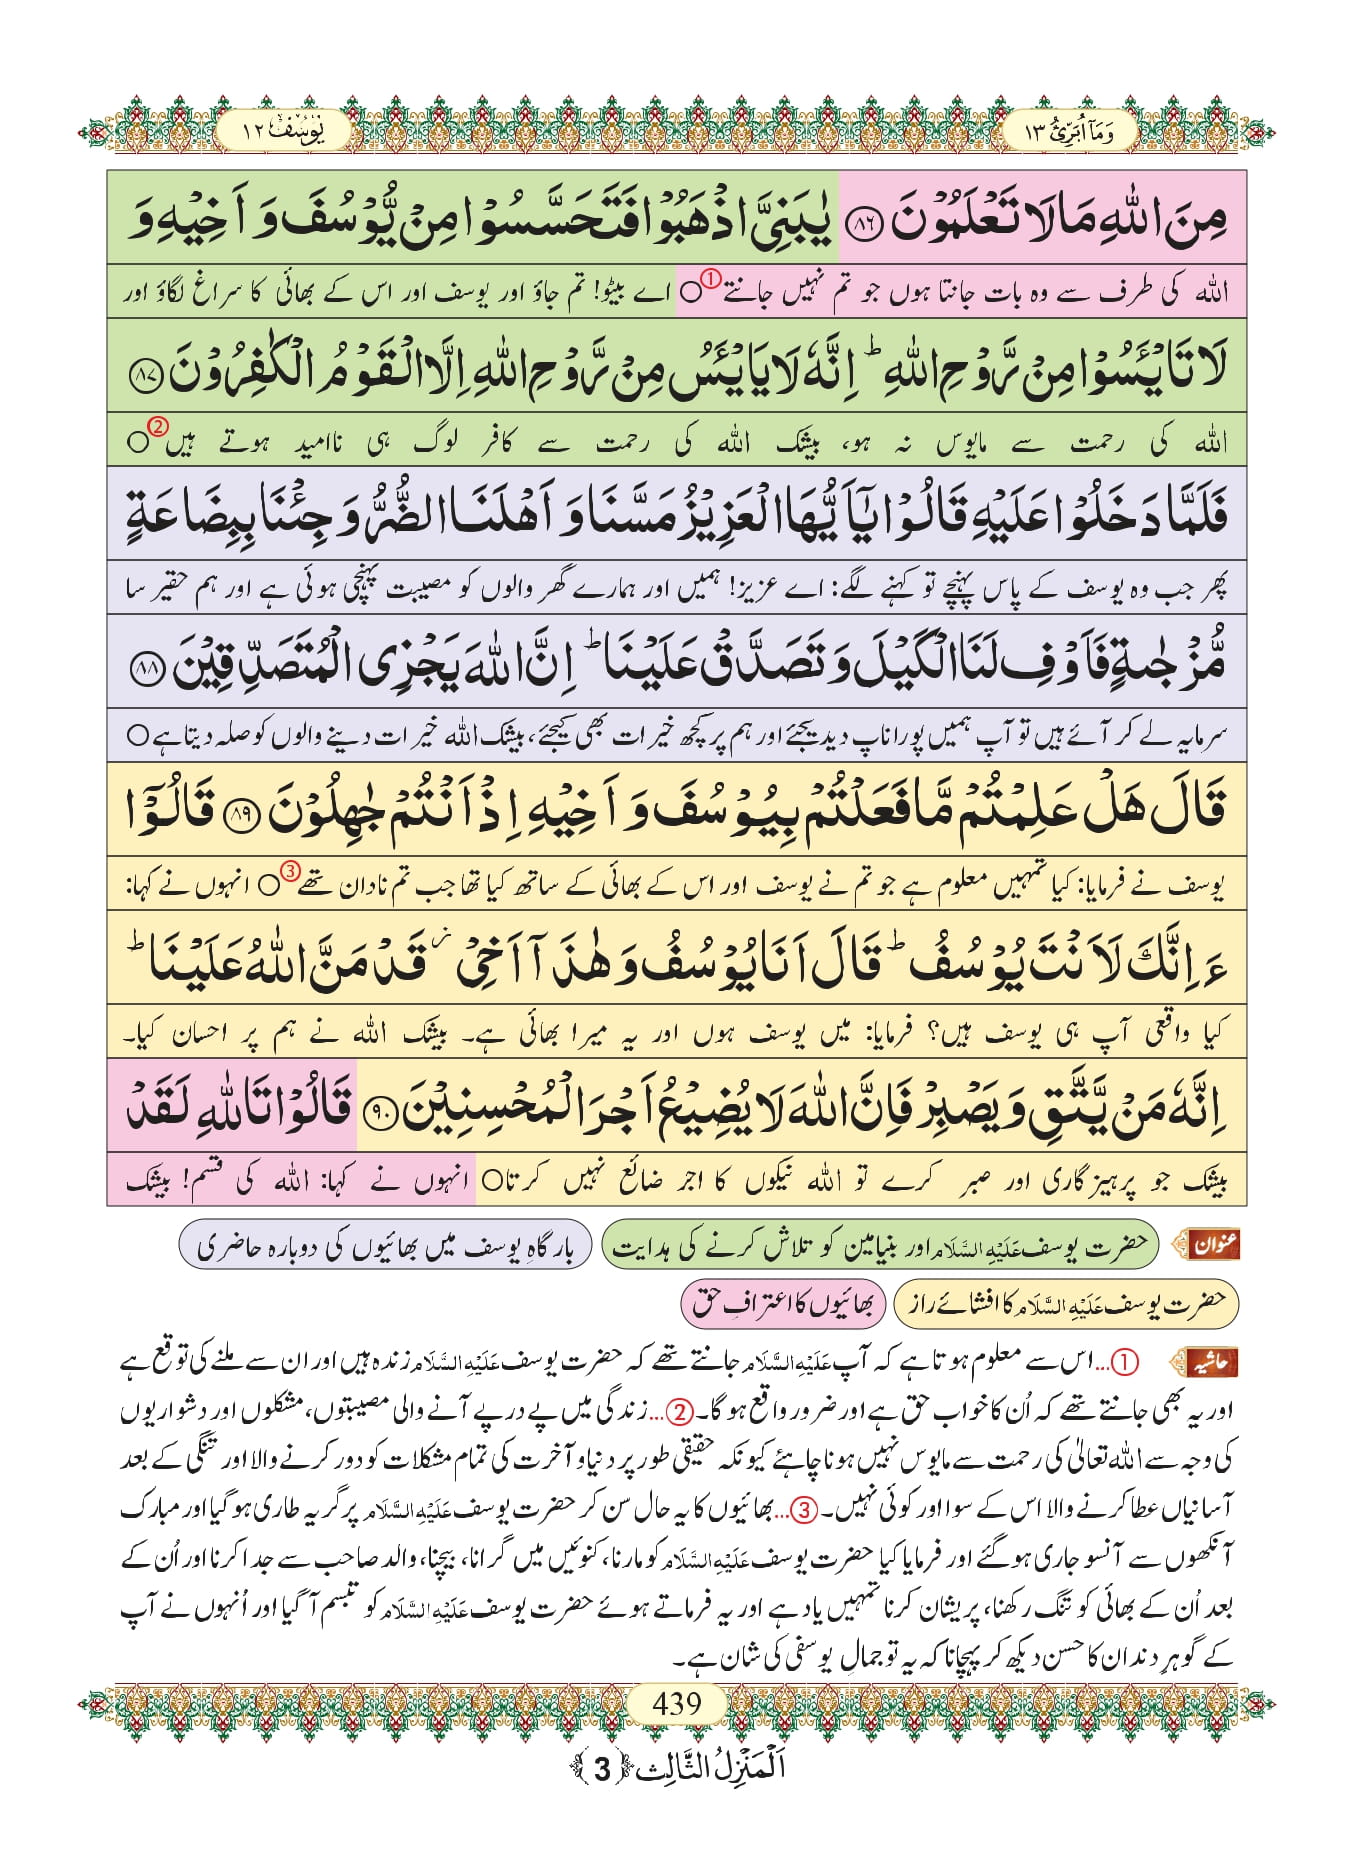 وَمَاۤ اُبَرِّئُ ١٣
یُوْسُف ١٢
مِنَ اللّٰهِ مَا لَا تَعْلَمُوْنَ ﴿۸۶﴾ یٰبَنِیَّ اذْهَبُوْا فَتَحَسَّسُوْا مِنْ یُّوْسُفَ وَ اَخِیْهِ وَ
اللہ کی طرف سے وہ بات جانتا ہوں جو تم نہیں جانتے①○ اے بیٹو! تم جاؤ اور یوسف اور اس کے بھائی کا سراغ لگاؤ اور
لَا تَایْـَٔسُوْا مِنْ رَّوْحِ اللّٰهِ ؕ اِنَّهٗ لَا یَایْـَٔسُ مِنْ رَّوْحِ اللّٰهِ اِلَّا الْقَوْمُ الْكٰفِرُوْنَ ﴿۸۷﴾
اللہ کی رحمت سے مایوس نہ ہو، بیشک اللہ کی رحمت سے کافر لوگ ہی ناامید ہوتے ہیں②○
فَلَمَّا دَخَلُوْا عَلَیْهِ قَالُوْا یٰۤاَیُّهَا الْعَزِیْزُ مَسَّنَا وَ اَهْلَنَا الضُّرُّ وَ جِئْنَا بِبِضَاعَةٍ
پھر جب وہ یوسف کے پاس پہنچے تو کہنے لگے: اے عزیز! ہمیں اور ہمارے گھر والوں کو مصیبت پہنچی ہوئی ہے اور ہم حقیر سا
مُّزْجٰىةٍ فَاَوْفِ لَنَا الْكَیْلَ وَ تَصَدَّقْ عَلَیْنَا ؕ اِنَّ اللّٰهَ یَجْزِی الْمُتَصَدِّقِیْنَ ﴿۸۸﴾
سرمایہ لے کر آئے ہیں تو آپ ہمیں پورا ناپ دیدیجئے اور ہم پر کچھ خیرات بھی کیجئے، بیشک اللہ خیرات دینے والوں کو صلہ دیتا ہے○
قَالَ هَلْ عَلِمْتُمْ مَّا فَعَلْتُمْ بِیُوْسُفَ وَ اَخِیْهِ اِذْ اَنْتُمْ جٰهِلُوْنَ ﴿۸۹﴾ قَالُوْۤا
یوسف نے فرمایا: کیا تمہیں معلوم ہے جو تم نے یوسف اور اس کے بھائی کے ساتھ کیا تھا جب تم نادان تھے③○ انہوں نے کہا:
ءَاِنَّكَ لَاَنْتَ یُوْسُفُ ؕ قَالَ اَنَا یُوْسُفُ وَ هٰذَاۤ اَخِیْ ؗ قَدْ مَنَّ اللّٰهُ عَلَیْنَا ؕ
کیا واقعی آپ ہی یوسف ہیں؟ فرمایا: میں یوسف ہوں اور یہ میرا بھائی ہے۔ بیشک اللہ نے ہم پر احسان کیا۔
اِنَّهٗ مَنْ یَّتَّقِ وَ یَصْبِرْ فَاِنَّ اللّٰهَ لَا یُضِیْعُ اَجْرَ الْمُحْسِنِیْنَ ﴿۹۰﴾ قَالُوْا تَاللّٰهِ لَقَدْ
بیشک جو پرہیزگاری اور صبر کرے تو اللہ نیکوں کا اجر ضائع نہیں کرتا○ انہوں نے کہا: اللہ کی قسم! بیشک
عنوان حضرت یوسف عَلَیْہِ السَّلَام اور بنیامین کو تلاش کرنے کی ہدایت بارگاہِ یوسف میں بھائیوں کی دوبارہ حاضری
حضرت یوسف عَلَیْہِ السَّلَام کا افشائے راز بھائیوں کا اعترافِ حق
حاشیہ ①...اس سے معلوم ہوتا ہے کہ آپ عَلَیْہِ السَّلَام جانتے تھے کہ حضرت یوسف عَلَیْہِ السَّلَام زندہ ہیں اور ان سے ملنے کی توقع ہے
اور یہ بھی جانتے تھے کہ اُن کا خواب حق ہے اور ضرور واقع ہوگا۔ ②...زندگی میں پے درپے آنے والی مصیبتوں، مشکلوں اور دشواریوں
کی وجہ سے اللہ تعالیٰ کی رحمت سے مایوس نہیں ہونا چاہئے کیونکہ حقیقی طور پر دنیا و آخرت کی تمام مشکلات کو دور کرنے والا اور تنگی کے بعد
آسانیاں عطا کرنے والا اس کے سوا اور کوئی نہیں۔ ③...بھائیوں کا یہ حال سن کر حضرت یوسف عَلَیْہِ السَّلَام پر گریہ طاری ہوگیا اور مبارک
آنکھوں سے آنسو جاری ہوگئے اور فرمایا کیا حضرت یوسف عَلَیْہِ السَّلَام کو مارنا، کنوئیں میں گرانا، بیچنا، والد صاحب سے جدا کرنا اور اُن کے
بعد اُن کے بھائی کو تنگ رکھنا، پریشان کرنا تمہیں یاد ہے اور یہ فرماتے ہوئے حضرت یوسف عَلَیْہِ السَّلَام کو تبسم آگیا اور اُنہوں نے آپ
کے گوہرِ دندان کا حسن دیکھ کر پہچانا کہ یہ تو جمالِ یوسفی کی شان ہے۔
439
اَلْمَنْزِلُ الثَّالِث ﴿3﴾